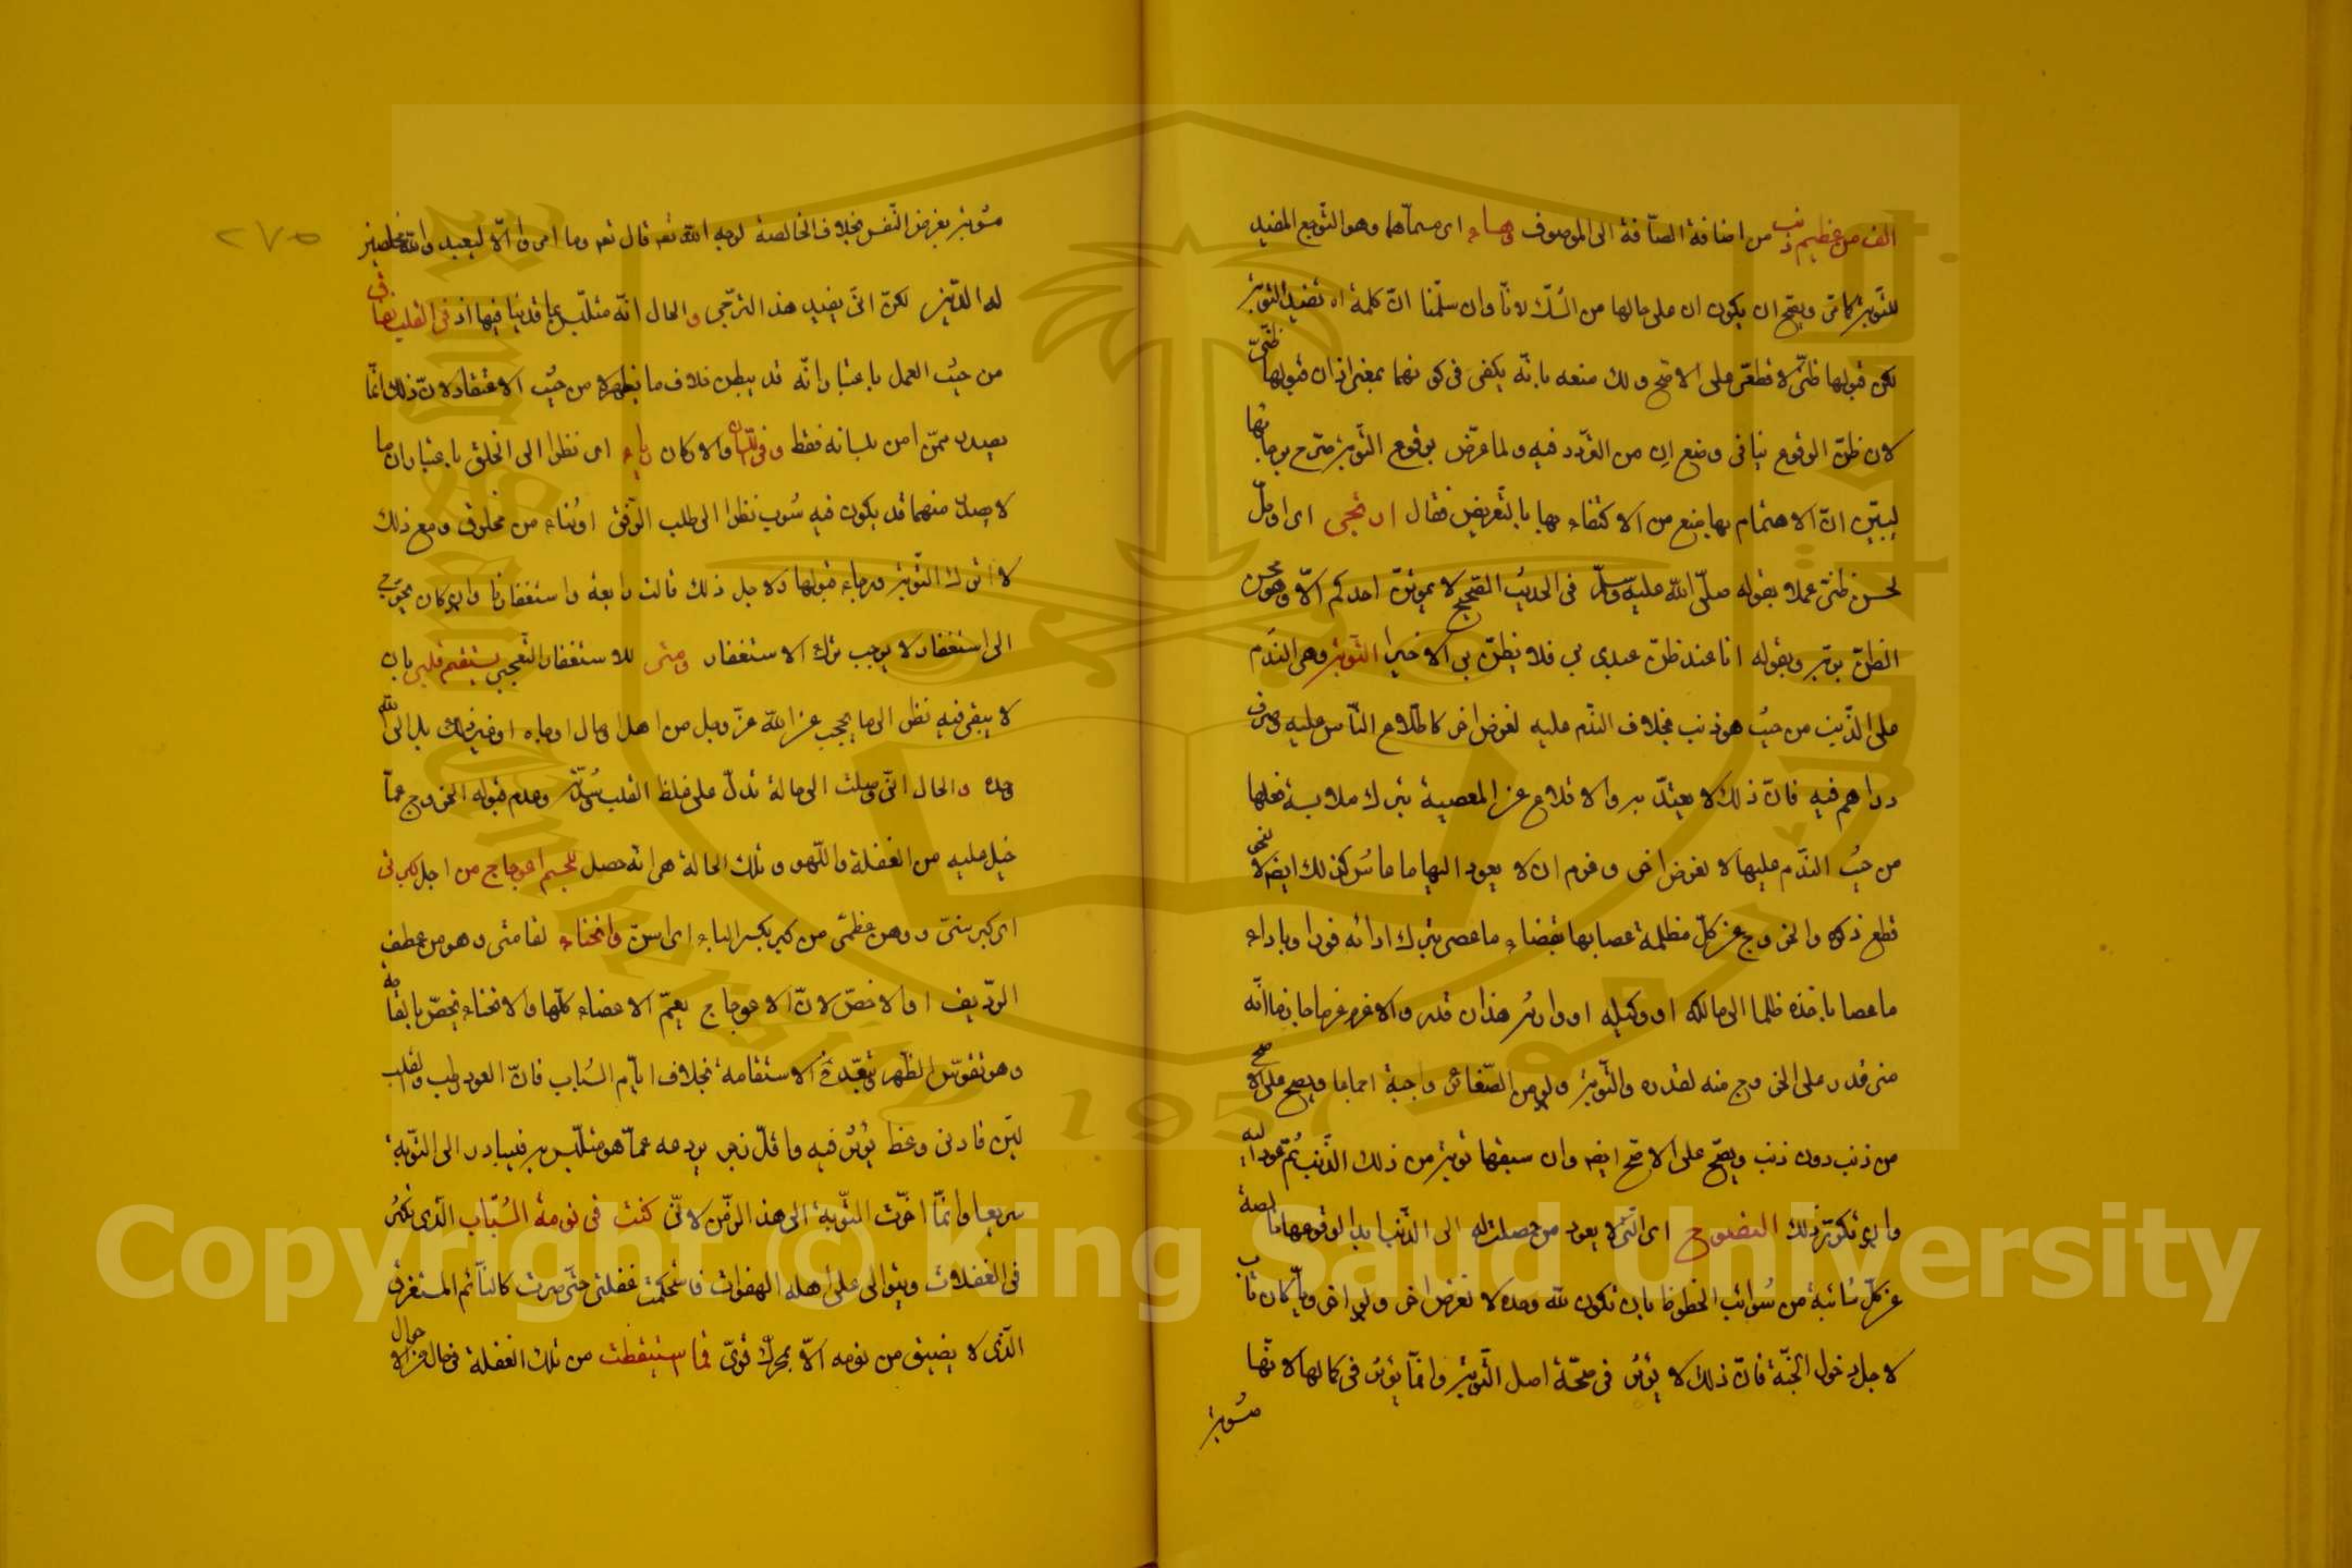 الف من عظيم ذنب من اضافة الصّافة الى الموصوف وهاء اى مسمّاهما وهو التّوجع المفيد
للتّوبة كما مرّ ويصحّ ان يكون ان على حالها من الشّك لانّا وان سلّمنا انّ كلمة اه تفيد التّوبة
لكن قبولها ظنّىّ لا قطعىّ على الاصحّ ولك منعه بانّه يكفى فى كونها بمعنى اذ ان قبولها ظنّىّ
لان ظنّ الوقوع ينافى وضع ان من التّردّد فيه ولما عرّض بوقوع التّوبة صرّح برجائها
ليبيّن انّ الاهتمام بها يمنع من الاكتفاء بها بالتّعريض فقال ارتجى اى اومّل
لحسن ظنّى عملا بقوله صلّى اللّه عليه وسلّم فى الحديث الصّحيح لا يموتنّ احدكم الّا وهو يحسن
الظنّ بربّه وبقوله انا عند ظنّ عبدى بى فلا يظنّ بى الا خيرا التّوبة وهى النّدم
على الذّنب من حيث هو ذنب بخلاف النّدم عليه لغرض اخر كاطّلاع النّاس عليه وصرف
دراهم فيه فانّ ذلك لا يعتدّ به والاقلاع عن المعصية بترك ملابسة فعلها
من حيث النّدم عليها لا لغرض اخر وعزم ان لا يعود اليها ما عاش كذلك ايضا لا لنحو
قطع ذكره والخروج عن كلّ مظلمة عصا بها بقضاء ما عصى بترك ادائه فورا وباداء
ما عصا باخذه ظلما الى مالكه او وكيله او وارثه هذا ان قدر والا عزم عزما جازما انّه
متى قدر على الخروج منه لقدره والتّوبة ولو من الصّغائر واجبة اجماعا ويصح على الاصح
من ذنب دون ذنب ويصحّ على الاصحّ ايضا وان سبقها توبة من ذلك الذّنب ثمّ عود اليه
وان تكرّر ذلك النصوح اى الّتى لا يعود من حصلت له الى الذّنب ابدا لوقوعها خالصة
عن كلّ شائبة من شوائب الحظوظ بان تكون للّه وحده لا لغرض اخر ولو اخرويّا كان تاب
لاجل دخول الجنّة فانّ ذلك لا يؤثر فى صحّة اصل التّوبة وانّما يؤثر فى كمالها لانّها
مشوبة
٢٧٥
مشوبة بغرض النّفس بخلاف الخالصة لوجه اللّه تع قال تع وما امروا الّا ليعبدوا اللّه مخلصين
له الدّين لكن انّى يفيد هذا التّرجّى والحال انّه متلبّس بما قد ينافيها اذ فى القلب نفاق
من حيث العمل باعتبار انّه قد يبطن خلاف ما يظهره من حيث الاعتقاد لانّ ذلك انّما
يصدر ممّن امن بلسانه فقط وفى اللّسان والاركان رياء اى نظرا الى الخلق باعتبار ان ما
لا صدر منهما قد يكون فيه شوب نظرا الى طلب الرّفق او ثناء من مخلوق ومع ذلك
لا اترك التّوبة ورجاء قبولها ولاجل ذلك قالت رابعة واستغفارنا وان كان يحوج
الى استغفار لا يوجب ترك الاستغفار ومتى للاستفهام التّعجبى يستقيم قلبى بان
لا يبقى فيه نظر الى ما يحجب عن اللّه عزّ وجل من اهل ومال وجاه او غير ذلك بل الى اللّه
وحده والحال انّى وصلت الى حالة تدلّ على غلظ القلب وعدم قبوله الخروج عمّا
جبل عليه من الغفلة واللّهو وتلك الحالة هى انّه حصل للجسم اعوجاج من اجل كبرتى
اى كبر سنّى ووهن عظمى من كبر بكسر الباء اى اسنّ وانحناء لقامتى وهو من عطف
الرّديف او الاخصّ لانّ الاعوجاج يعمّ الاعضاء كلّها والانحناء يختصّ بالقامة
وهو تقوّس الظّهر الاستقامة بخلاف ايّام الشّباب فانّ العود رطب والقلب
ليّن فادنى وعظ يؤثر فيه واقلّ زجر يردعه عمّا هو متلبّس به فيبادر الى التّوبة
سريعا وانّما اخّرت التّوبة الى هذا الزّمن لانّى كنت فى نومة الشّباب الّذى تكثر
فى الغفلات ويتوالى على اهله الهفوات فاستحكمت غفلتى حتّى صرت كالنّائم المستغرق
الّذى لا يفيق من نومه الّا بمحرّك قوىّ فما استيقظت من تلك الغفلة فى حال من الاحوال
Copyright © King Saud University
King Saud University
1957